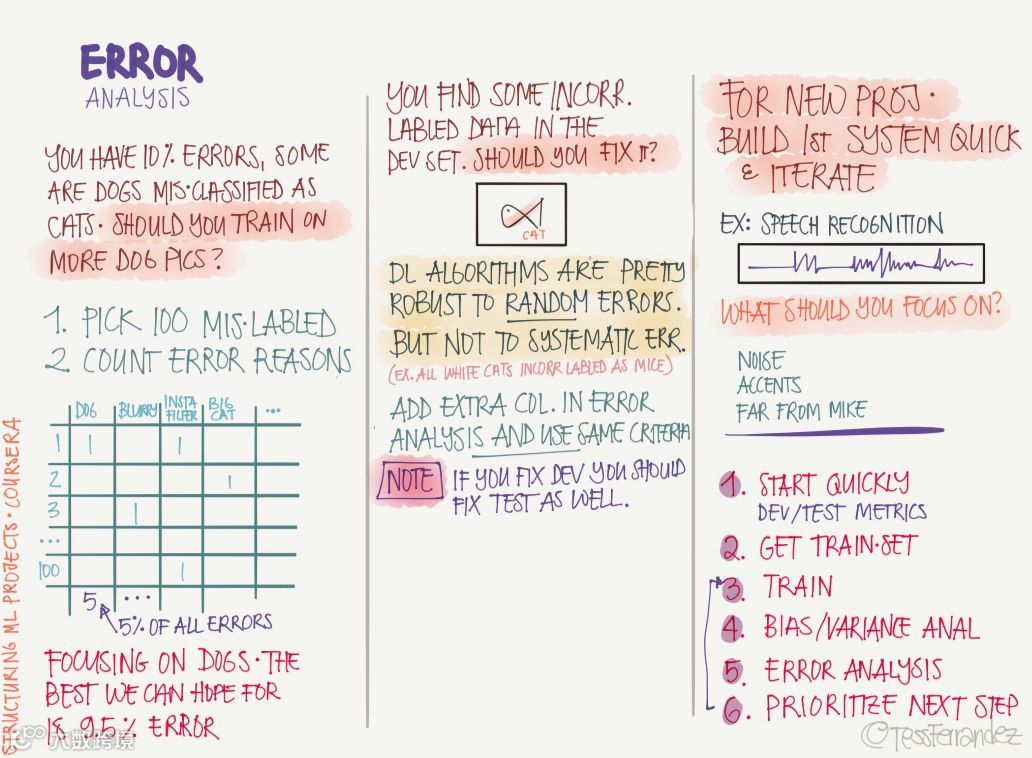 ERROR
ANALYSIS
YOU HAVE 10% ERRORS, SOME
ARE DOGS MIS·CLASSIFIED AS
CATS· SHOULD YOU TRAIN ON
MORE DOG PICS?
1. PICK 100 MIS·LABLED
2. COUNT ERROR REASONS
DOG BLURRY INSTA FILTER BIG CAT ...
1 1 1
2 1
3 1
...
100 1
5 ...
5% OF ALL ERRORS
FOCUSING ON DOGS· THE
BEST WE CAN HOPE FOR
IS 9.5% ERROR
STRUCTURING ML PROJECTS· COURSERA
YOU FIND SOME INCORR.
LABLED DATA IN THE
DEV SET. SHOULD YOU FIX IT?
CAT
DL ALGORITHMS ARE PRETTY
ROBUST TO RANDOM ERRORS.
BUT NOT TO SYSTEMATIC ERR.
(EX. ALL WHITE CATS INCORR LABLED AS MICE)
ADD EXTRA COL. IN ERROR
ANALYSIS AND USE SAME CRITERIA
NOTE IF YOU FIX DEV YOU SHOULD
FIX TEST AS WELL.
FOR NEW PROJ·
BUILD 1st SYSTEM QUICK
& ITERATE
EX: SPEECH RECOGNITION
WHAT SHOULD YOU FOCUS ON?
NOISE
ACCENTS
FAR FROM MIKE
1. START QUICKLY
DEV/TEST METRICS
2. GET TRAIN·SET
3. TRAIN
4. BIAS/VARIANCE ANAL
5. ERROR ANALYSIS
6. PRIORITIZE NEXT STEP
@TessFerrandez
大数跨境